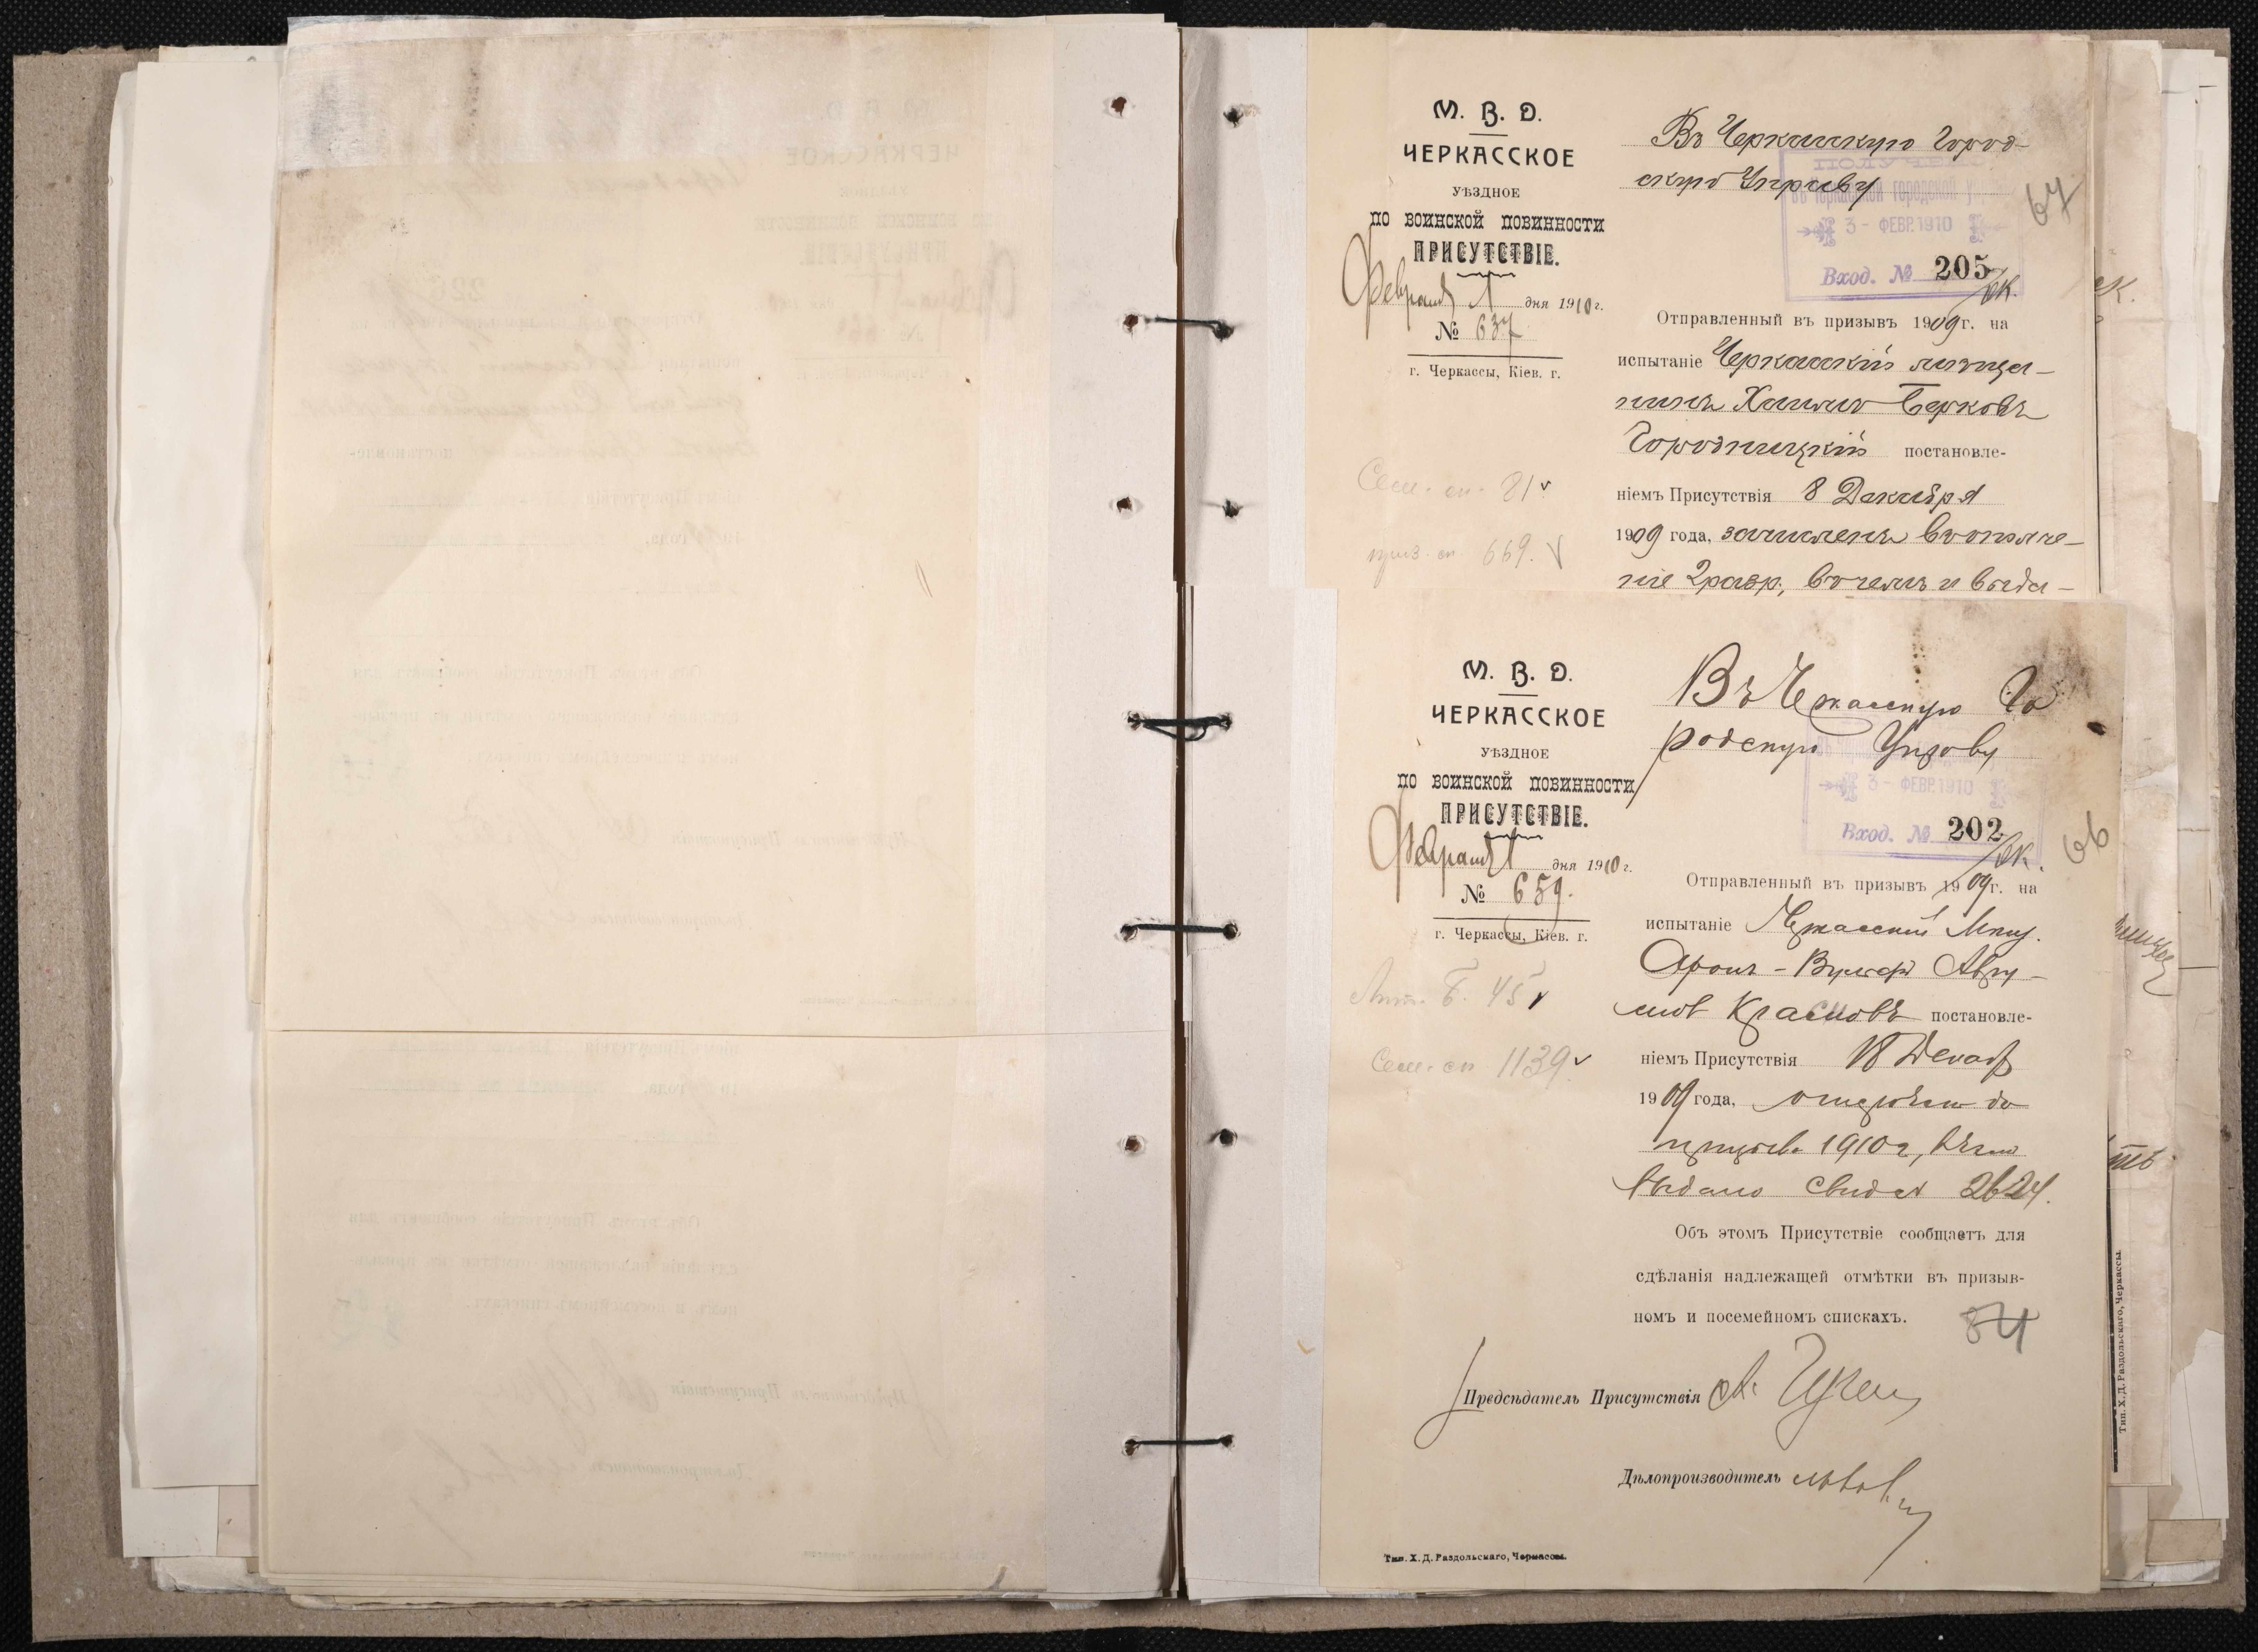 М. В. Д.
ЧЕРКАССКОЕ
УѢЗДНОЕ
ПО ВОИНСКОЙ ПОВИННОСТИ
ПРИСУТСТВІЕ.
Февраля 1 дня 1910 г.
№ 637
г. Черкассы, Кіев. г.
Сем. сп. 81 v
приз. сп. 669. v
Въ Черкасскую Город-
скую Управу
ПОЛУЧЕНО
въ Черкасской городской управ
3 - ФЕВР. 1910
Вход. № 205
67
Отправленный въ призывъ 1909 г. на
испытаніе Черкасскій мѣща-
нинъ Хаимъ Берковъ
Городницкій постановле-
ніемъ Присутствія 8 Декабря
1909 года, зачисленъ въ ополче-
ніе 2 разр., въ чемъ и выда-
М. В. Д.
ЧЕРКАССКОЕ
УѢЗДНОЕ
ПО ВОИНСКОЙ ПОВИННОСТИ
ПРИСУТСТВІЕ.
Февраля 1 дня 1910 г.
№ 659.
г. Черкассы, Кіев. г.
Сем. сп. 1139 v
Въ Черкасскую Го
родскую Управу
3 - ФЕВР. 1910
Вход. № 202
66
Отправленный въ призывъ 1909 г. на
испытаніе Черкасскій Мѣщ.
Аронъ-Вульфъ Авру-
мов Красновъ постановле-
ніемъ Присутствія 18 Декаб
1909 года, отсрочен до
призыва 1910 г, в чем
выдано свидет 2624.
Объ этомъ Присутствіе сообщаетъ для
сдѣланія надлежащей отмѣтки въ призыв-
номъ и посемейномъ спискахъ.
84
Предсѣдатель Присутствія
Дѣлопроизводитель
Тип. Х. Д. Раздольскаго, Черкассы.
Тип. Х. Д. Раздольскаго, Черкассы.